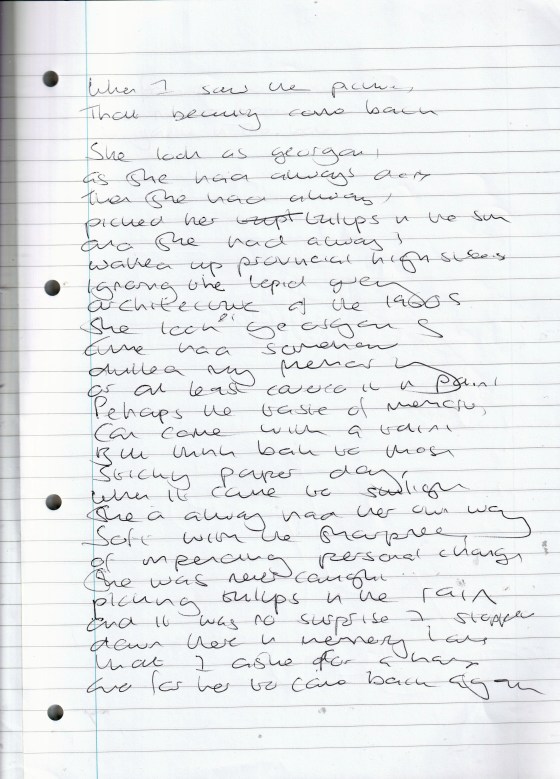 When I saw the picture,
That beauty came back
She look as georgeous
as she had always does
Then she had always
picked her tulips in the sun
and she had always
walked up provincial high streets
ignoring the tepid grey
architecture of the 1960s
She look georgeous
time had somehow
dulled my memory
or at least covered it in paint
Perhaps the taste of memory,
Can come with a taint
But think back to those
Sticky paper days
when it came to sunlight
She'd always had her own way
Soft with the sharpness
of impending personal change
She was never caught
picking tulips in the rain
and it was no surprise I stopped
down there in memory lane
that I asked for a hand
and for her to come back again